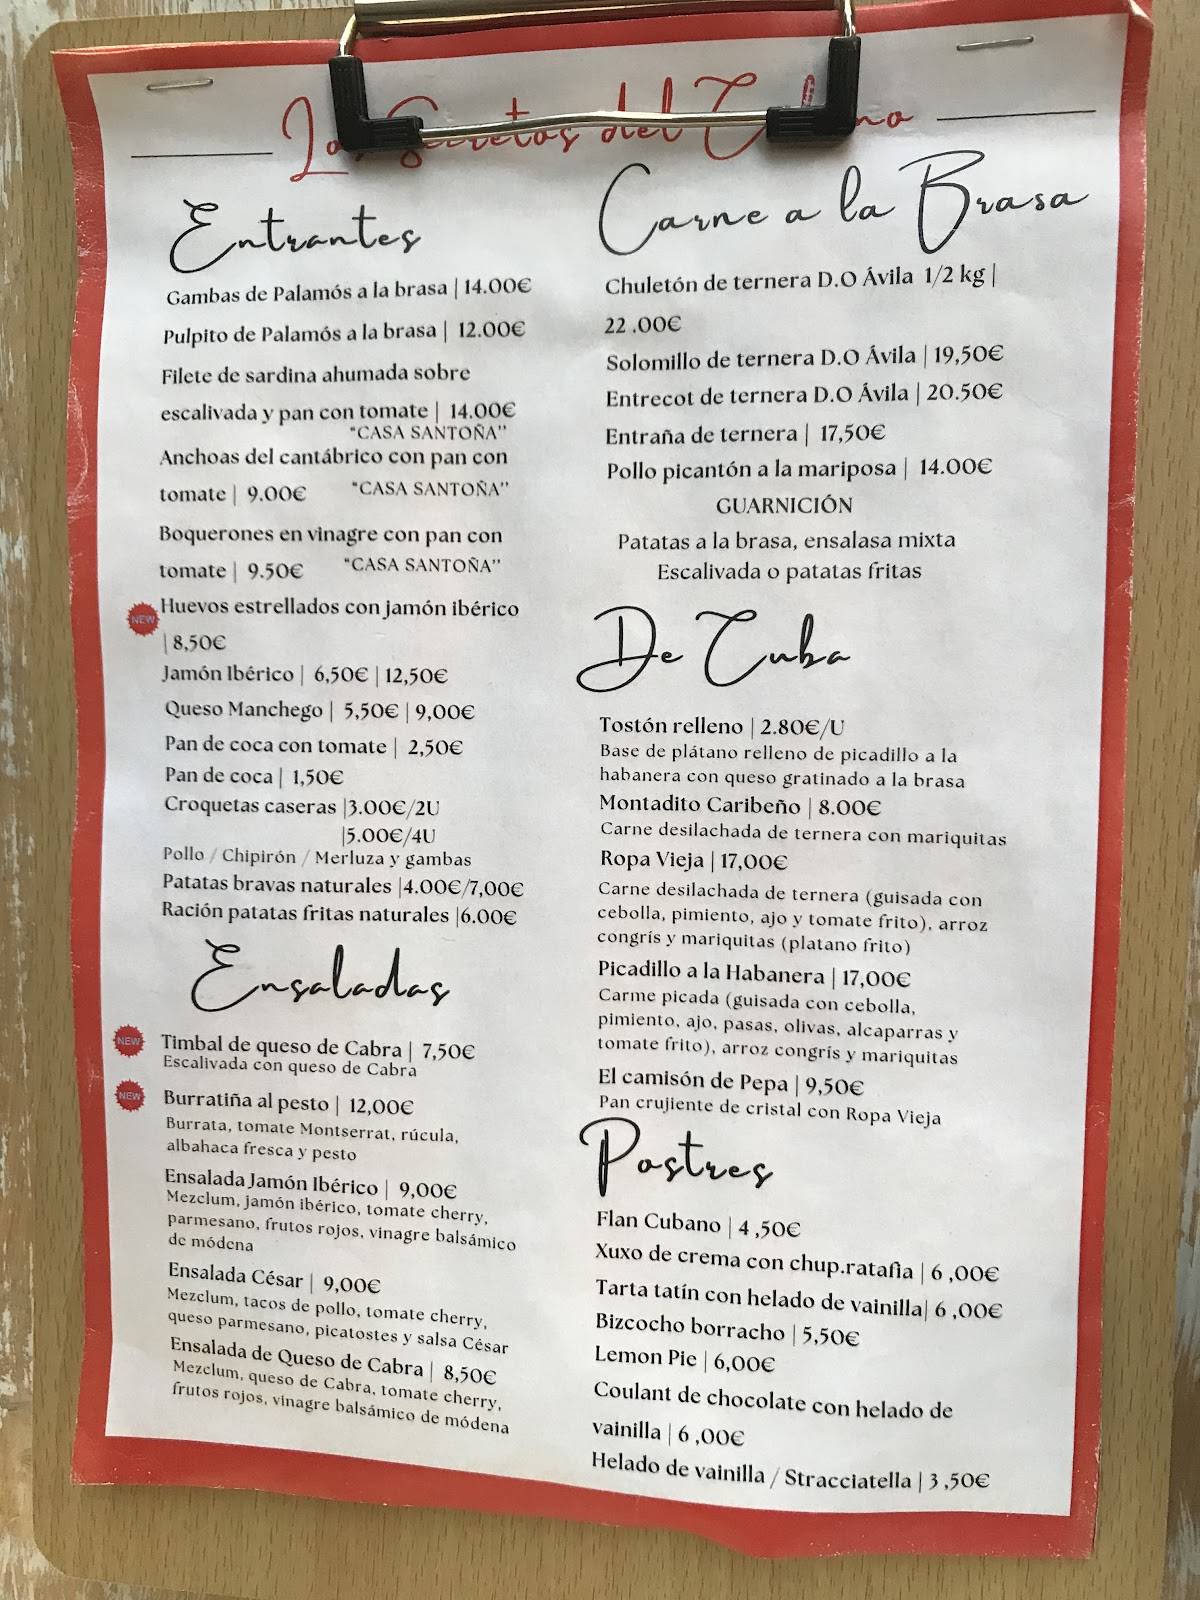 del
Entrantes
Gambas de Palamós a la brasa | 14.00€
Pulpito de Palamós a la brasa | 12.00€
Filete de sardina ahumada sobre
escalivada y pan con tomate | 14.00€
"CASA SANTOÑA"
Anchoas del cantábrico con pan con
tomate | 9.00€ "CASA SANTOÑA"
Boquerones en vinagre con pan con
tomate | 9.50€ "CASA SANTOÑA"
NEW Huevos estrellados con jamón ibérico
| 8,50€
Jamón Ibérico | 6,50€ | 12,50€
Queso Manchego | 5,50€ | 9,00€
Pan de coca con tomate | 2,50€
Pan de coca | 1,50€
Croquetas caseras |3.00€/2U
|5.00€/4U
Pollo / Chipirón / Merluza y gambas
Patatas bravas naturales |4.00€/7,00€
Ración patatas fritas naturales |6.00€
Ensaladas
NEW Timbal de queso de Cabra | 7,50€
Escalivada con queso de Cabra
NEW Burratiña al pesto | 12,00€
Burrata, tomate Montserrat, rúcula,
albahaca fresca y pesto
Ensalada Jamón Ibérico | 9,00€
Mezclum, jamón ibérico, tomate cherry,
parmesano, frutos rojos, vinagre balsámico
de módena
Ensalada César | 9,00€
Mezclum, tacos de pollo, tomate cherry,
queso parmesano, picatostes y salsa César
Ensalada de Queso de Cabra | 8,50€
Mezclum, queso de Cabra, tomate cherry,
frutos rojos, vinagre balsámico de módena
Carne a la Brasa
Chuletón de ternera D.O Ávila 1/2 kg |
22 .00€
Solomillo de ternera D.O Ávila | 19,50€
Entrecot de ternera D.O Ávila | 20.50€
Entraña de ternera | 17,50€
Pollo picantón a la mariposa | 14.00€
GUARNICIÓN
Patatas a la brasa, ensalasa mixta
Escalivada o patatas fritas
De Cuba
Tostón relleno | 2.80€/U
Base de plátano relleno de picadillo a la
habanera con queso gratinado a la brasa
Montadito Caribeño | 8.00€
Carne desilachada de ternera con mariquitas
Ropa Vieja | 17,00€
Carne desilachada de ternera (guisada con
cebolla, pimiento, ajo y tomate frito), arroz
congrís y mariquitas (platano frito)
Picadillo a la Habanera | 17,00€
Carme picada (guisada con cebolla,
pimiento, ajo, pasas, olivas, alcaparras y
tomate frito), arroz congrís y mariquitas
El camisón de Pepa | 9,50€
Pan crujiente de cristal con Ropa Vieja
Postres
Flan Cubano | 4 ,50€
Xuxo de crema con chup.ratafia | 6 ,00€
Tarta tatín con helado de vainilla| 6 ,00€
Bizcocho borracho | 5,50€
Lemon Pie | 6,00€
Coulant de chocolate con helado de
vainilla | 6 ,00€
Helado de vainilla / Stracciatella | 3 ,50€